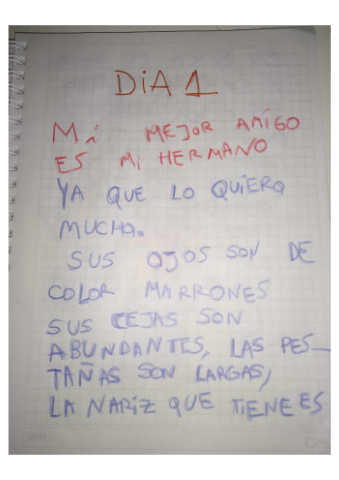 DIA 1
Mi MEJOR AMIGO
ES MI HERMANO
YA QUE LO QUIERO
MUCHO.
SUS OJOS SON DE
COLOR MARRONES
SUS CEJAS SON
ABUNDANTES, LAS PES_
TAÑAS SON LARGAS,
LA NARIZ QUE TIENE ES